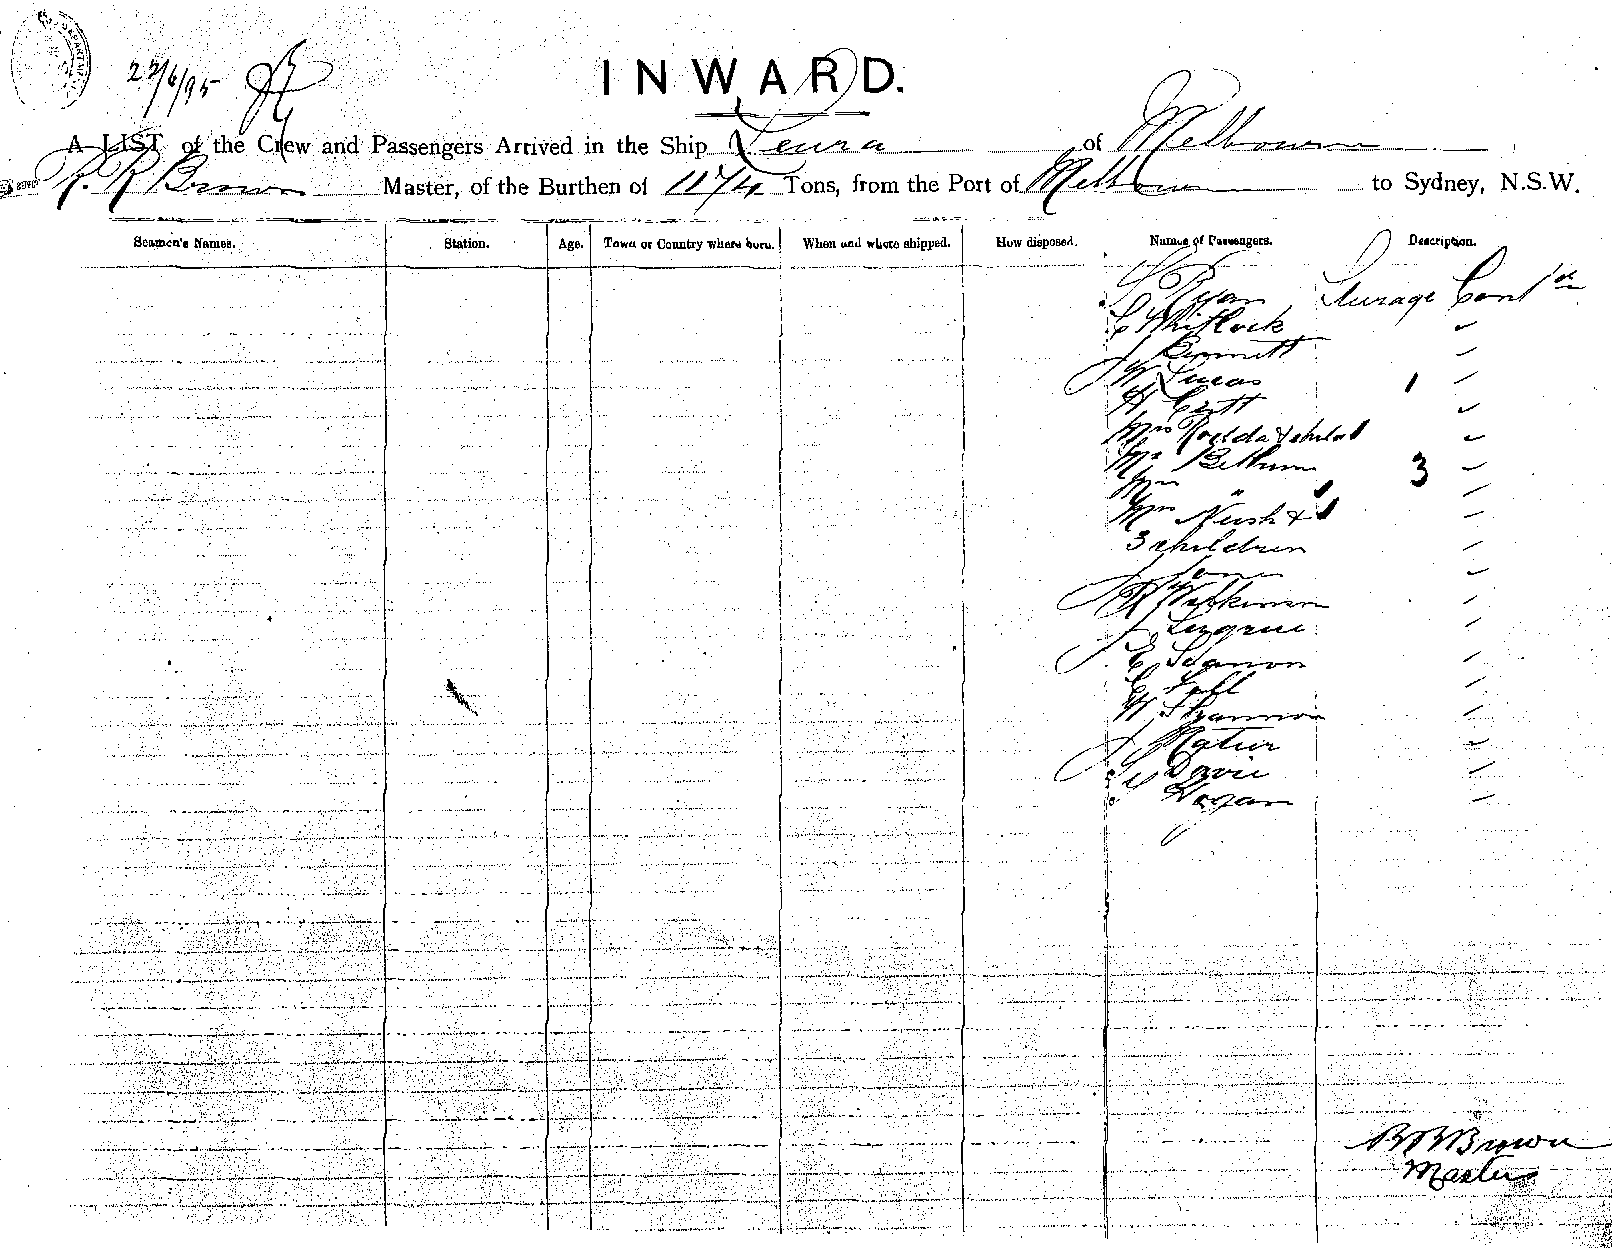 22/6/95
INWARD.
A LIST of the Crew and Passengers Arrived in the Ship Leura of Melbourne
R. R Brown Master, of the Burthen of 1174 Tons, from the Port of Melbourne to Sydney, N.S.W.
Seamen's Names. Station. Age. Town or Country where born. When and where shipped. How disposed. Names of Passengers. Description.
Ryan Steerage Cont
C Whitlock
J Bennett
W Lucas 1
H
Mrs Rodda & child
Mr Bethune 3
Mrs "
Mrs Nush &
3 children
J
R Watkinson
J
E Seamon
C
W Shannon
J
Davie
Hogan
R R Brown
Master